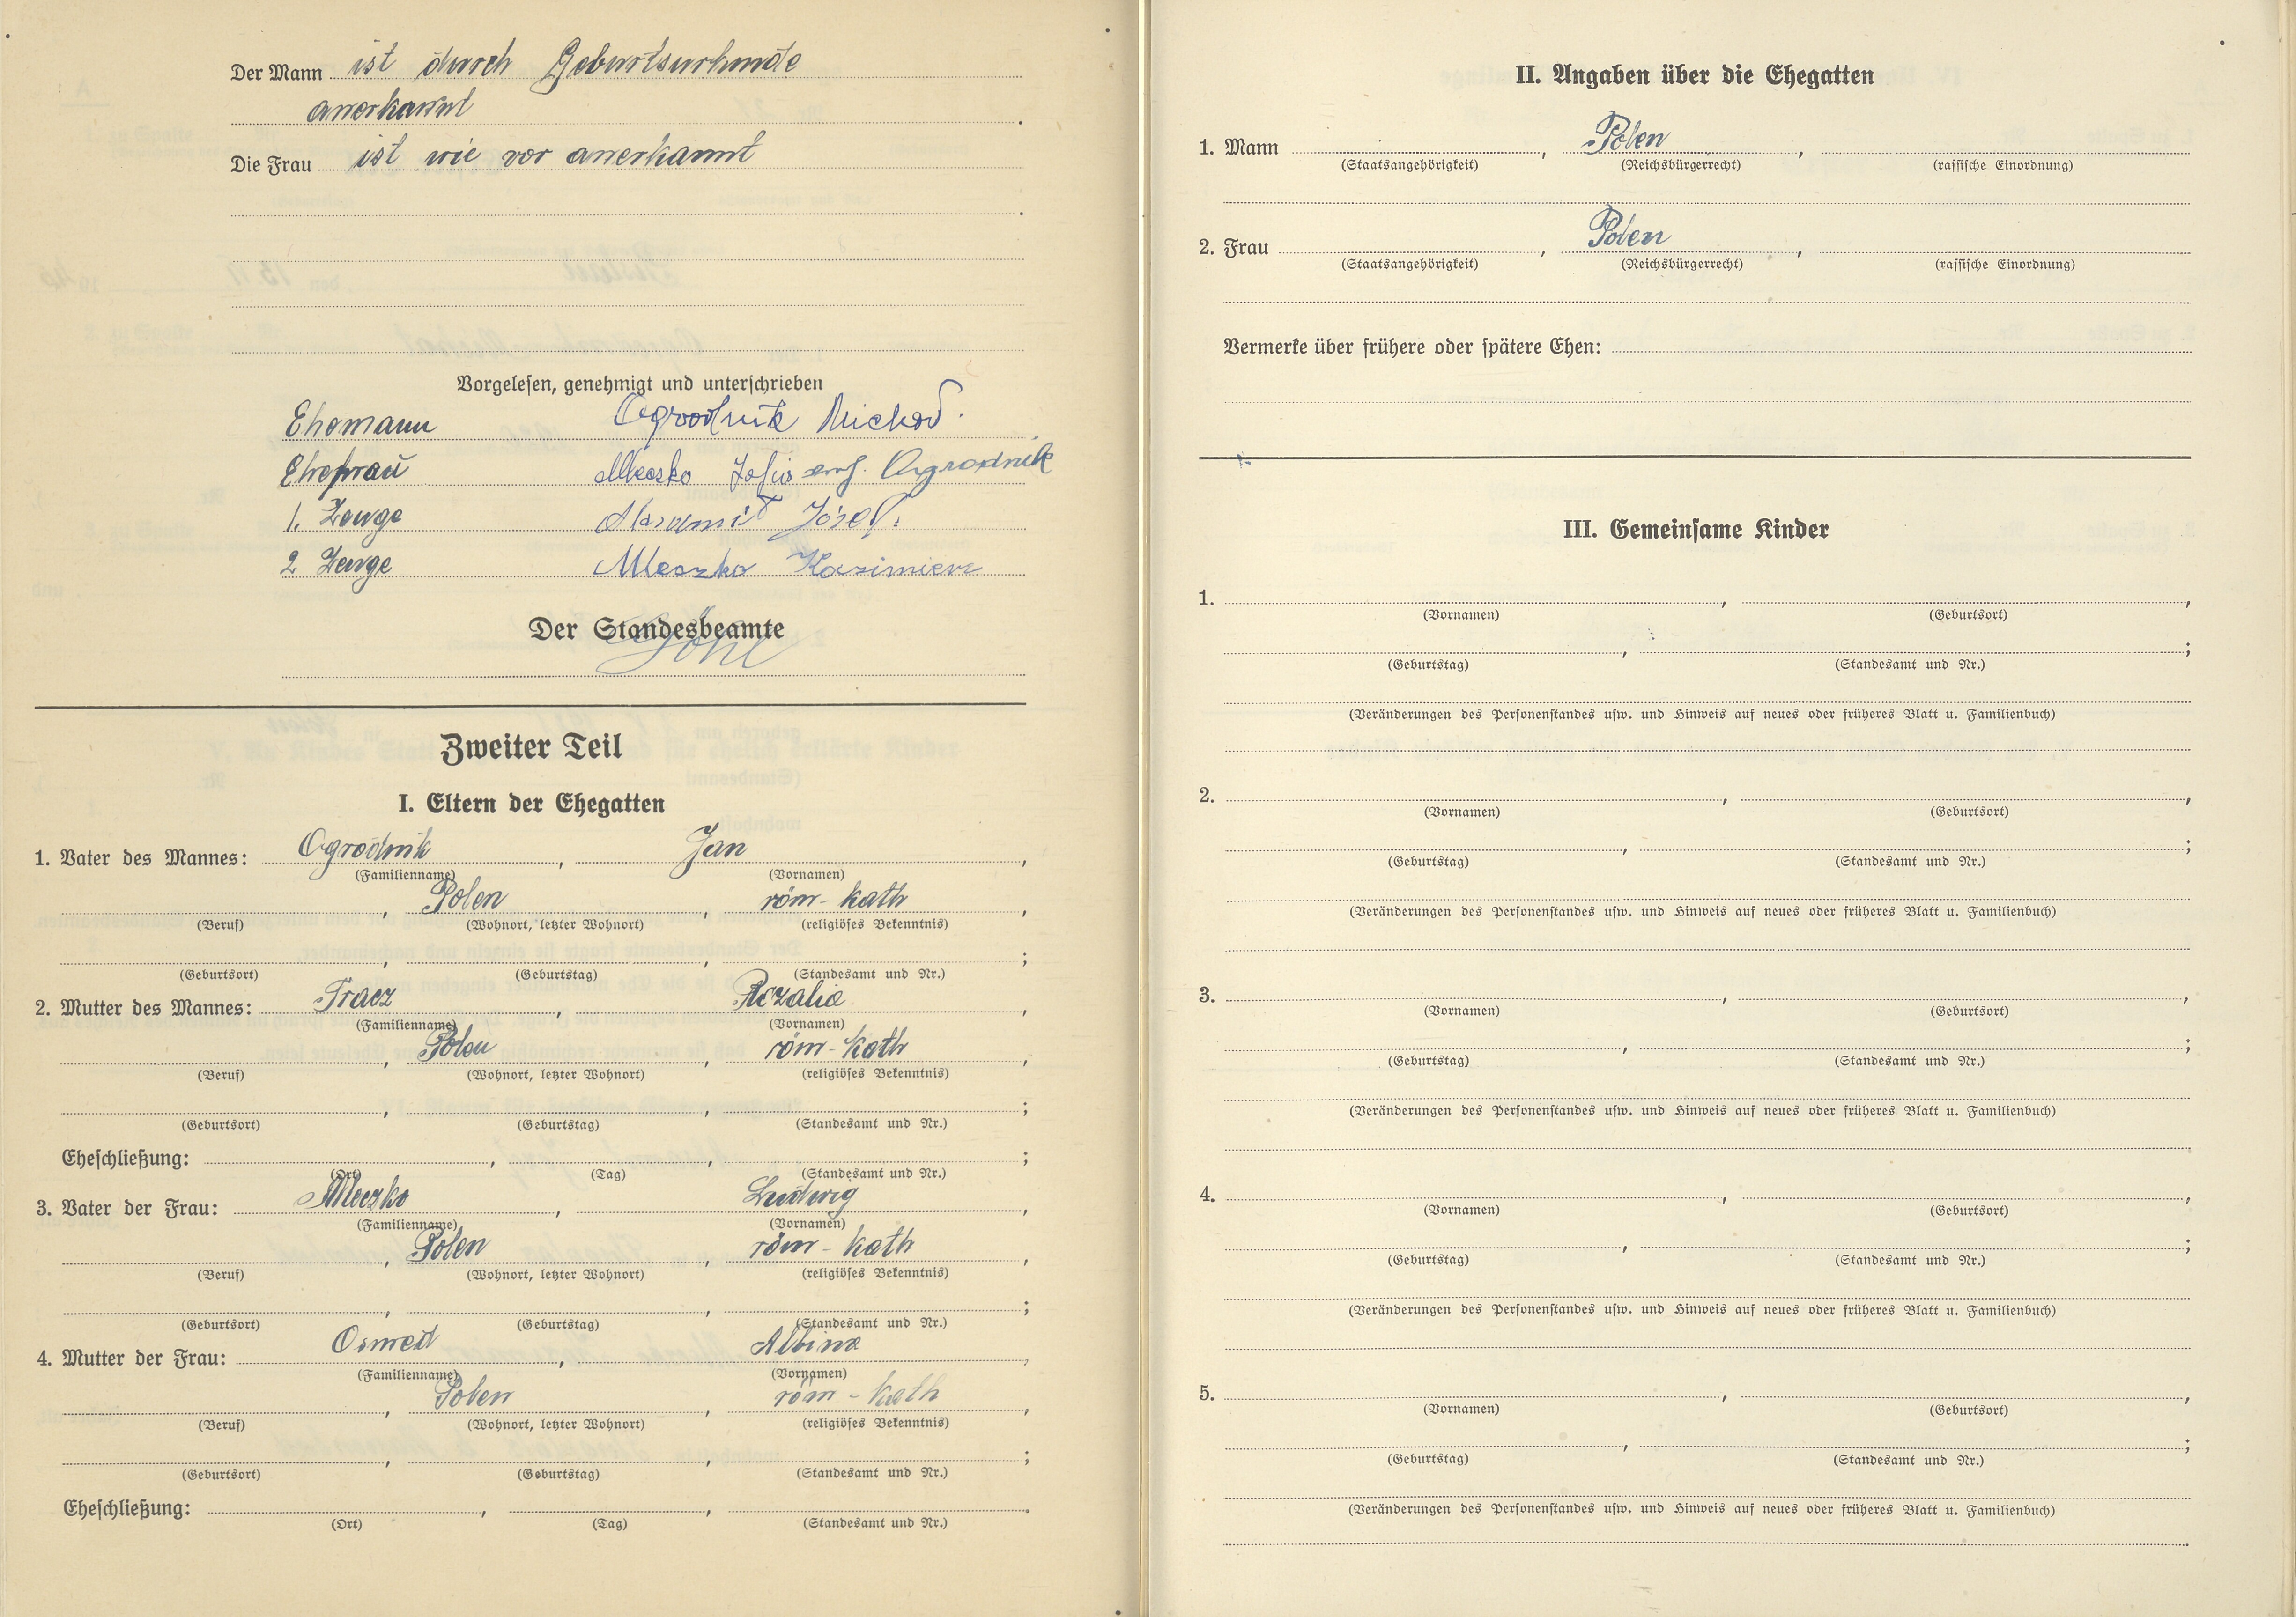 Der Mann ist durch Geburtsurkunde
anerkannt
Die Frau ist wie vor anerkannt
Vorgelesen, genehmigt und unterschrieben
Ehemann Ogrodnik Michał.
Ehefrau Mleczko Zofia Ogrodnik
1. Zeuge Józef.
2 Zeuge Mleczko Kazimierz
Der Standesbeamte
Zweiter Teil
I. Eltern der Ehegatten
1. Vater des Mannes: Ogrodnik, Jan,
(Familienname) (Vornamen)
, Polen, röm-kath,
(Beruf) (Wohnort, letzter Wohnort) (religiöses Bekenntnis)
, , ;
(Geburtsort) (Geburtstag) (Standesamt und Nr.)
2. Mutter des Mannes: Tracz, Rozalia,
(Familienname) (Vornamen)
, Polen, röm-kath,
(Beruf) (Wohnort, letzter Wohnort) (religiöses Bekenntnis)
, , ;
(Geburtsort) (Geburtstag) (Standesamt und Nr.)
Eheschließung: , , ;
(Ort) (Tag) (Standesamt und Nr.)
3. Vater der Frau: Mleczko, Ludwig,
(Familienname) (Vornamen)
, Polen, röm-kath,
(Beruf) (Wohnort, letzter Wohnort) (religiöses Bekenntnis)
, , ;
(Geburtsort) (Geburtstag) (Standesamt und Nr.)
4. Mutter der Frau: , Albina,
(Familienname) (Vornamen)
, Polen, röm-kath,
(Beruf) (Wohnort, letzter Wohnort) (religiöses Bekenntnis)
, , ;
(Geburtsort) (Geburtstag) (Standesamt und Nr.)
Eheschließung: , , .
(Ort) (Tag) (Standesamt und Nr.)
II. Angaben über die Ehegatten
1. Mann , Polen,
(Staatsangehörigkeit) (Reichsbürgerrecht) (rassische Einordnung)
2. Frau , Polen,
(Staatsangehörigkeit) (Reichsbürgerrecht) (rassische Einordnung)
Vermerke über frühere oder spätere Ehen:
III. Gemeinsame Kinder
1. , ,
(Vornamen) (Geburtsort)
, ;
(Geburtstag) (Standesamt und Nr.)
(Veränderungen des Personenstandes usw. und Hinweis auf neues oder früheres Blatt u. Familienbuch)
2. , ,
(Vornamen) (Geburtsort)
, ;
(Geburtstag) (Standesamt und Nr.)
(Veränderungen des Personenstandes usw. und Hinweis auf neues oder früheres Blatt u. Familienbuch)
3. , ,
(Vornamen) (Geburtsort)
, ;
(Geburtstag) (Standesamt und Nr.)
(Veränderungen des Personenstandes usw. und Hinweis auf neues oder früheres Blatt u. Familienbuch)
4. , ,
(Vornamen) (Geburtsort)
, ;
(Geburtstag) (Standesamt und Nr.)
(Veränderungen des Personenstandes usw. und Hinweis auf neues oder früheres Blatt u. Familienbuch)
5. , ,
(Vornamen) (Geburtsort)
, ;
(Geburtstag) (Standesamt und Nr.)
(Veränderungen des Personenstandes usw. und Hinweis auf neues oder früheres Blatt u. Familienbuch)